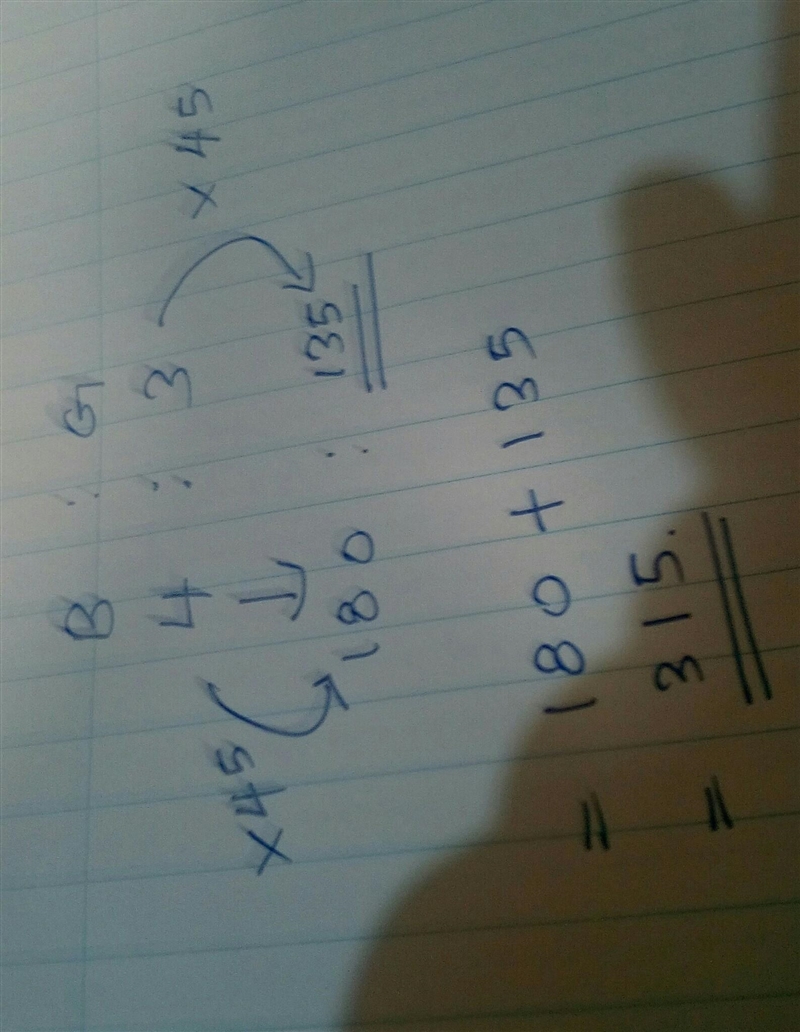 B : G
4 : 3
×45 ×45
180 : 135
= 180 + 135
= 315.